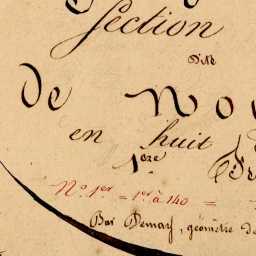 Section
Dite
de No
en huit
1ere
N.o 1.er = 1.er à 140 =
Par Demay, géomètre de